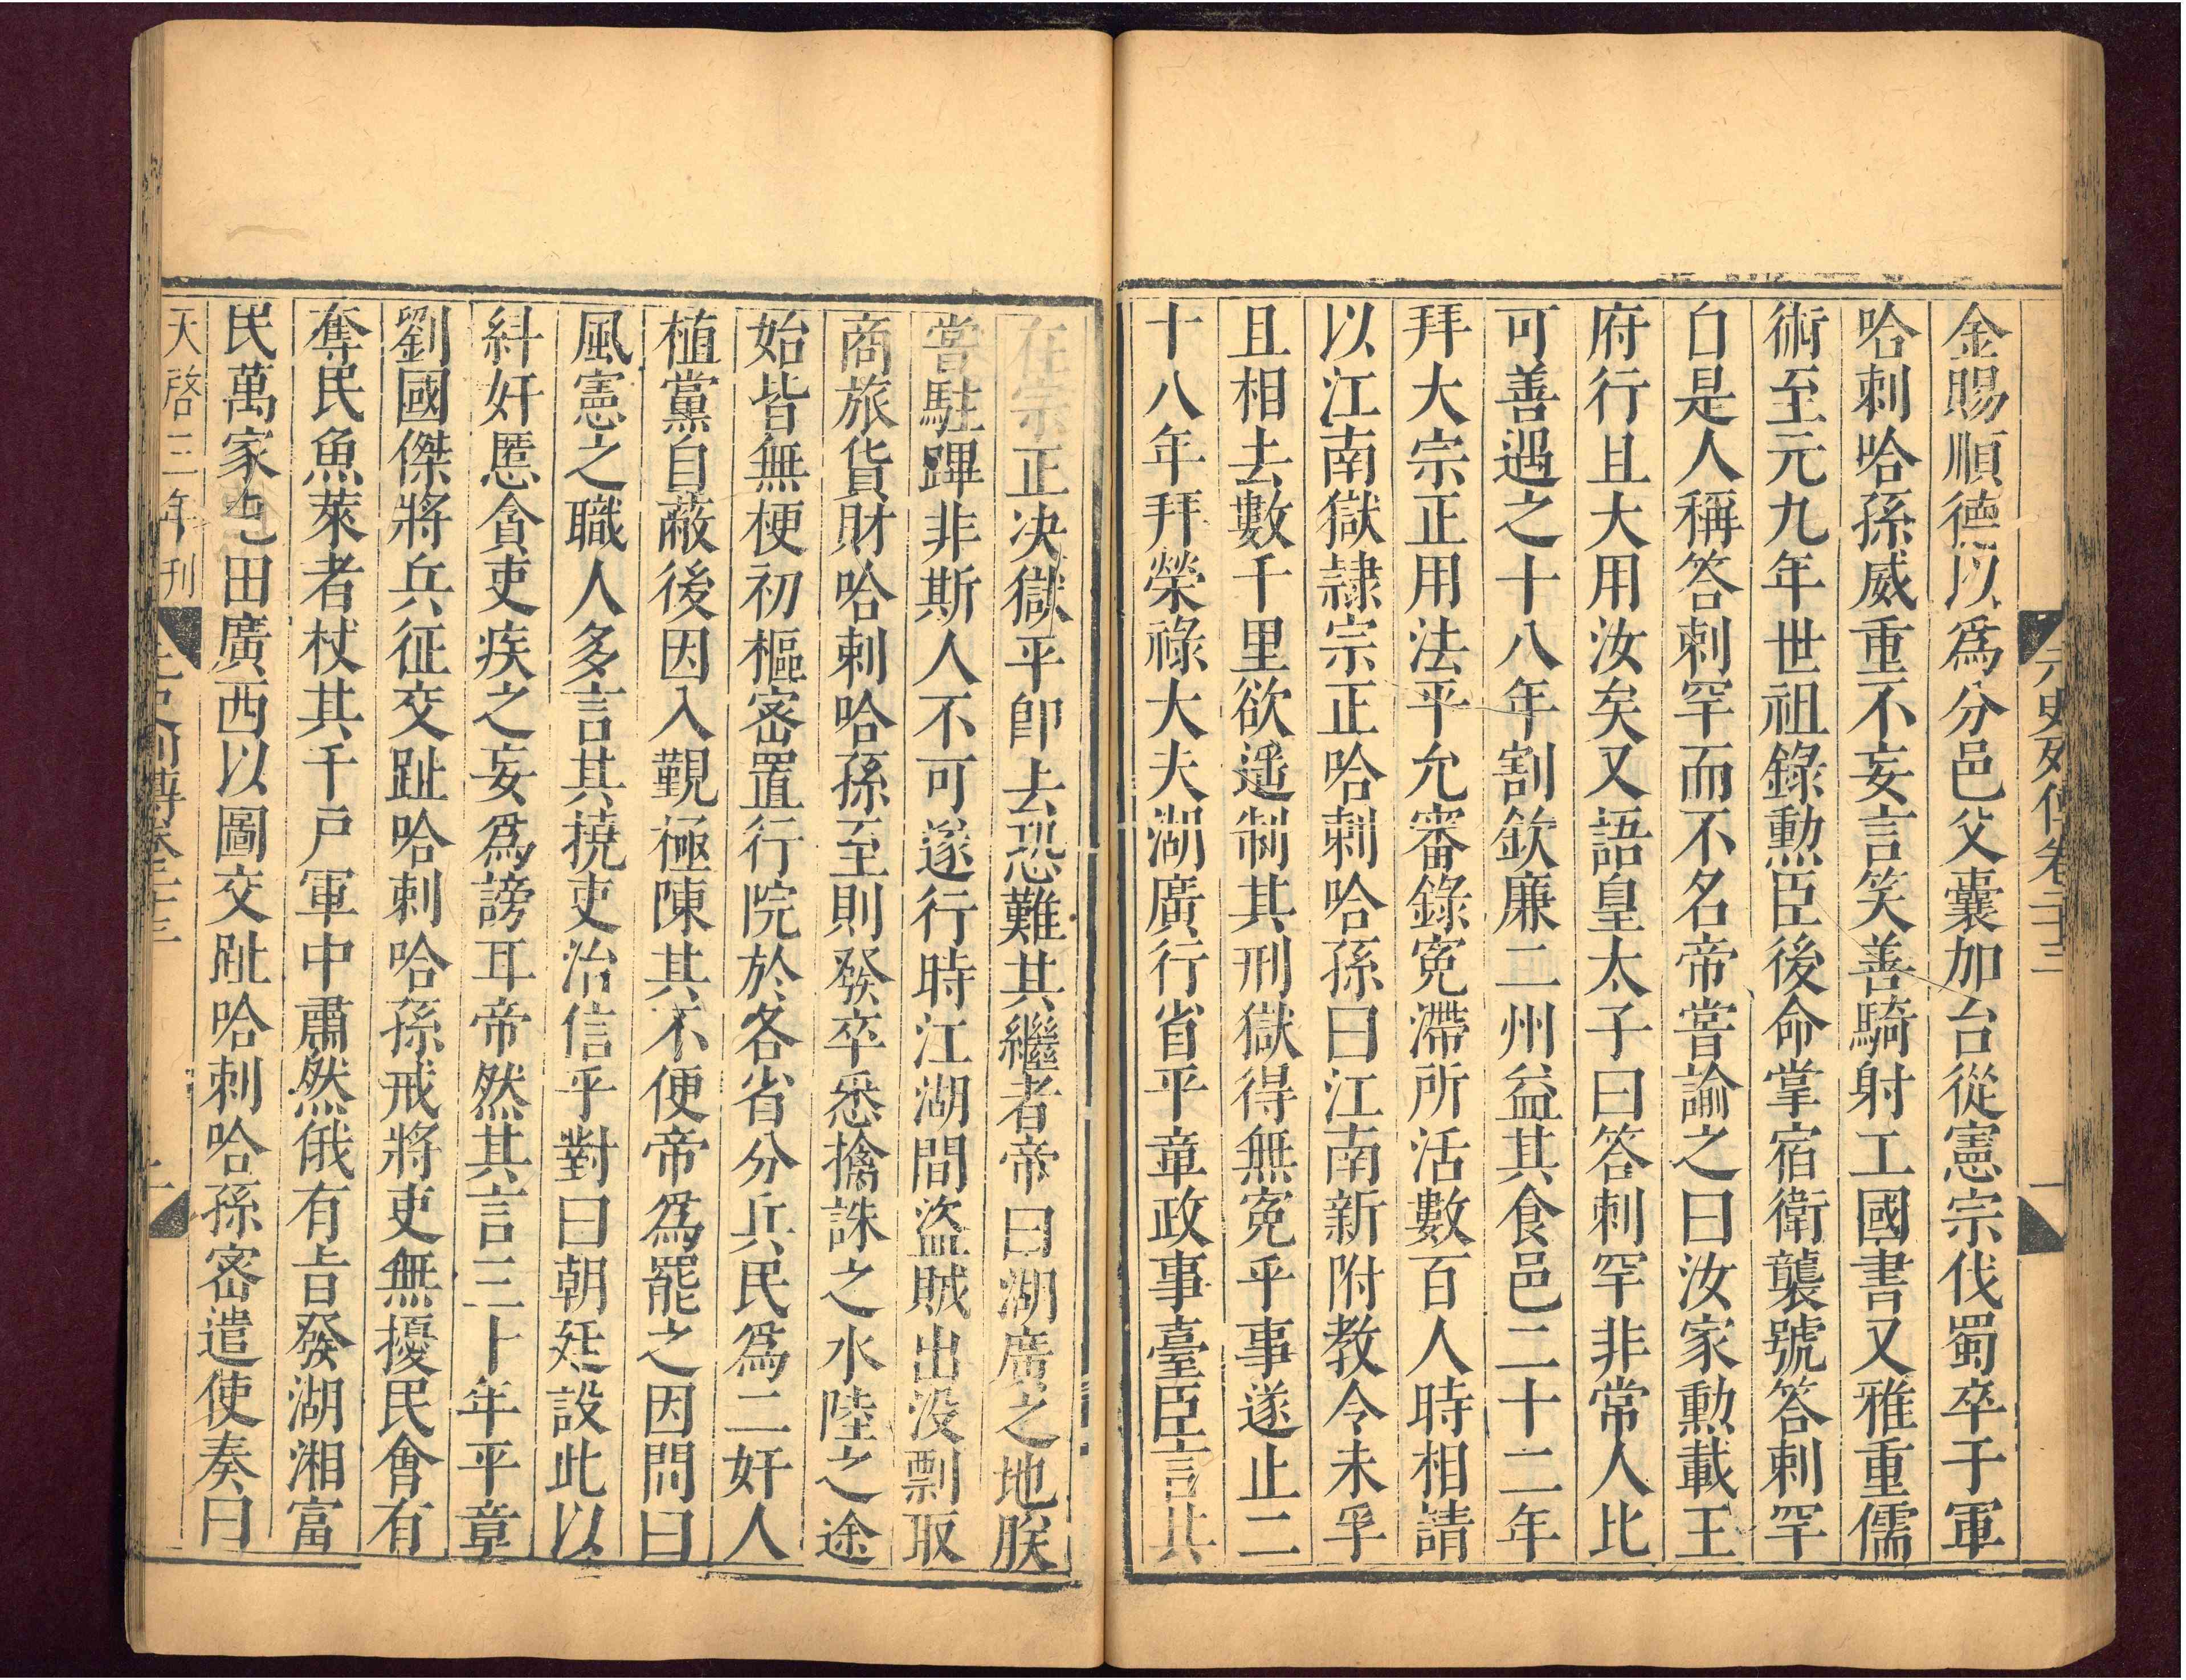 元史列傳卷二十三 一
金賜順德以爲分邑父囊加台從憲宗伐蜀卒于軍
哈剌哈孫威重不妄言笑善騎射工國書又雅重儒
術至元九年世祖錄勲臣後命掌宿衛襲號答剌罕
自是人稱答剌罕而不名帝嘗諭之曰汝家勲載王
府行且大用汝矣又語皇太子曰答剌罕非常人比
可善遇之十八年割欽廉二州益其食邑二十二年
拜大宗正用法平允審錄寃滯所活數百人時相請
以江南獄隷宗正哈剌哈孫曰江南新附教令未孚
且相去數千里欲遥制其刑獄得無寃乎事遂止二
十八年拜榮祿大夫湖廣行省平章政事臺臣言其
在宗正决獄平卽去恐難其繼者帝曰湖廣之地朕
嘗駐蹕非斯人不可遂行時江湖間盜賊出没剽取
商旅貨財哈剌哈孫至則發卒悉擒誅之水陸之途
始皆無梗初樞密置行院於各省分兵民爲二奸人
植黨自蔽後因入覲極陳其不便帝爲罷之因問曰
風憲之職人多言其撓吏治信乎對曰朝廷設此以
糾奸慝貪吏疾之妄爲謗耳帝然其言三十年平章
劉國傑將兵征交趾哈剌哈孫戒將吏無擾民會有
奪民魚萊者杖其千戶軍中肅然俄有旨發湖湘富
民萬家屯田廣西以圖交趾哈剌哈孫密遣使奏曰
天啓三年刊 元史列傳卷二十三